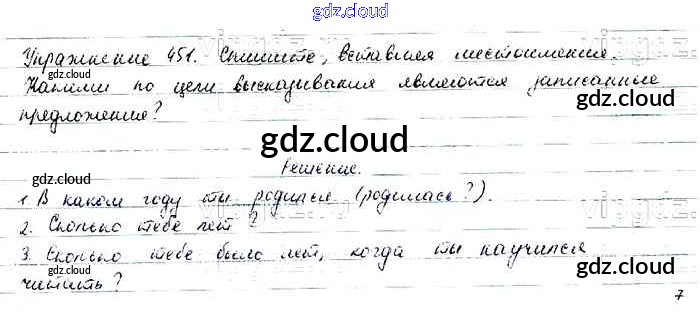 gdz.cloud
Упражнение 451. Спишите, вставляя местоимения.
gdz.cloud
Какими по цели высказывания являются записанные
gdz.cloud
предложения?
gdz.cloud
Решение.
gdz.cloud
1. В каком году ты родился (родилась?).
2. Сколько тебе лет?
gdz.cloud
3. Сколько тебе было лет, когда ты научился
gdz.cloud
читать?
gdz.cloud
7